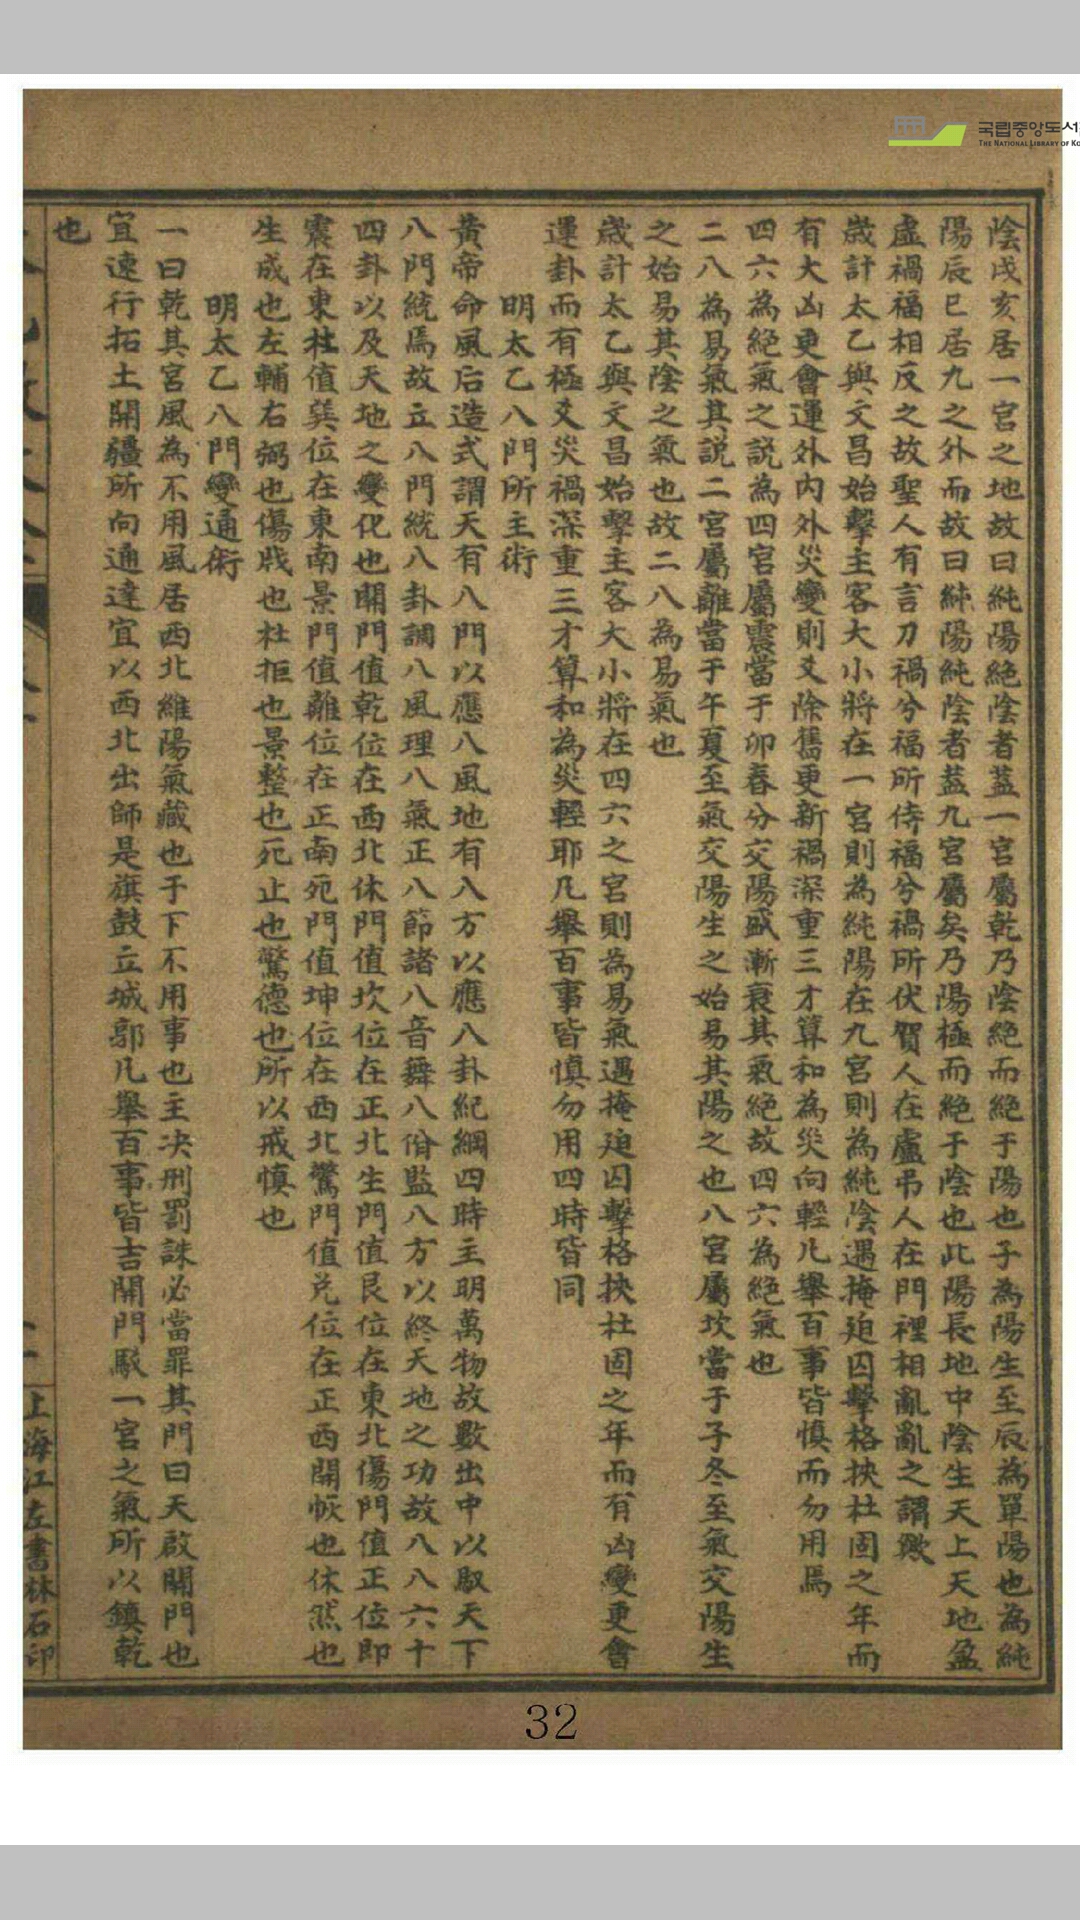 국립중앙도서
THE NATIONAL LIBRARY OF KO
陰戌亥居一宮之地故曰純陽絕陰者葢一宮屬乾乃陰絕而絕于陽也子為陽生至辰為單陽也為純
陽辰巳居九之外而故曰純陽純陰者葢九宮屬矣乃陽極而絕于陰也此陽長地中陰生天上天地盈
虛禍福相反之故聖人有言刀禍兮福所侍福兮禍所伏賀人在廬弔人在門裡相亂亂之謂歟
歲計太乙與文昌始擊主客大小將在一宮則為純陽在九宮則為純陰遇掩廹囚擊格挾杜固之年而
有大凶更會運外內外災變則爻除舊更新禍深重三才算和為災向輕凡舉百事皆慎而勿用焉
四六為絕氣之說為四宮屬震當于卯春分交陽盛漸衰其氣絕故四六為絕氣也
二八為易氣其説二宮屬離當于午夏至氣交陽生之始易其陽之也八宮屬坎當于子冬至氣交陽生
之始易其陰之氣也故二八為易氣也
歲計太乙與文昌始擊主客大小將在四六之宮則為易氣遇掩廹囚擊格挾杜固之年而有凶變更會
運卦而有極爻災禍深重三才算和為災輕耶凡舉百事皆慎勿用四時皆同
明太乙八門所主術
黃帝命風后造式謂天有八門以應八風地有八方以應八卦紀綱四時主明萬物故數出中以馭天下
八門統焉故立八門統八卦調八風理八氣正八節諸八音舞八佾監八方以終天地之功故八八六十
四卦以及天地之變化也開門值乾位在西北休門值坎位在正北生門值艮位在東北傷門值正位即
震在東杜值巽位在東南景門值離位在正南死門值坤位在西北驚門值兌位在正西開恢也休然也
生成也左輔右弼也傷戕也杜拒也景整也死止也驚德也所以戒慎也
明太乙八門變通術
一曰乾其宮風為不用風居西北維陽氣藏也于下不用事也主决刑罰誅必當罪其門曰天啟開門也
宜速行拓土開疆所向通達宜以西北出師是旗鼓立城郭凡舉百事皆吉開門馭一宮之氣所以鎮乾
也
上海江左書林石印
32